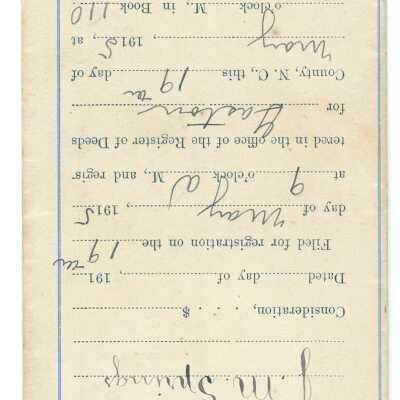 J. M. Springs
Consideration, . . . . $
Dated day of , 191
Filed for registration on the 19th
day of May 1915
at 9 o'clock A M., and regis-
tered in the office of the Register of Deeds
for Gaston
County, N. C., this 19th day of
May , 1915, at
o'clock M., in Book 110